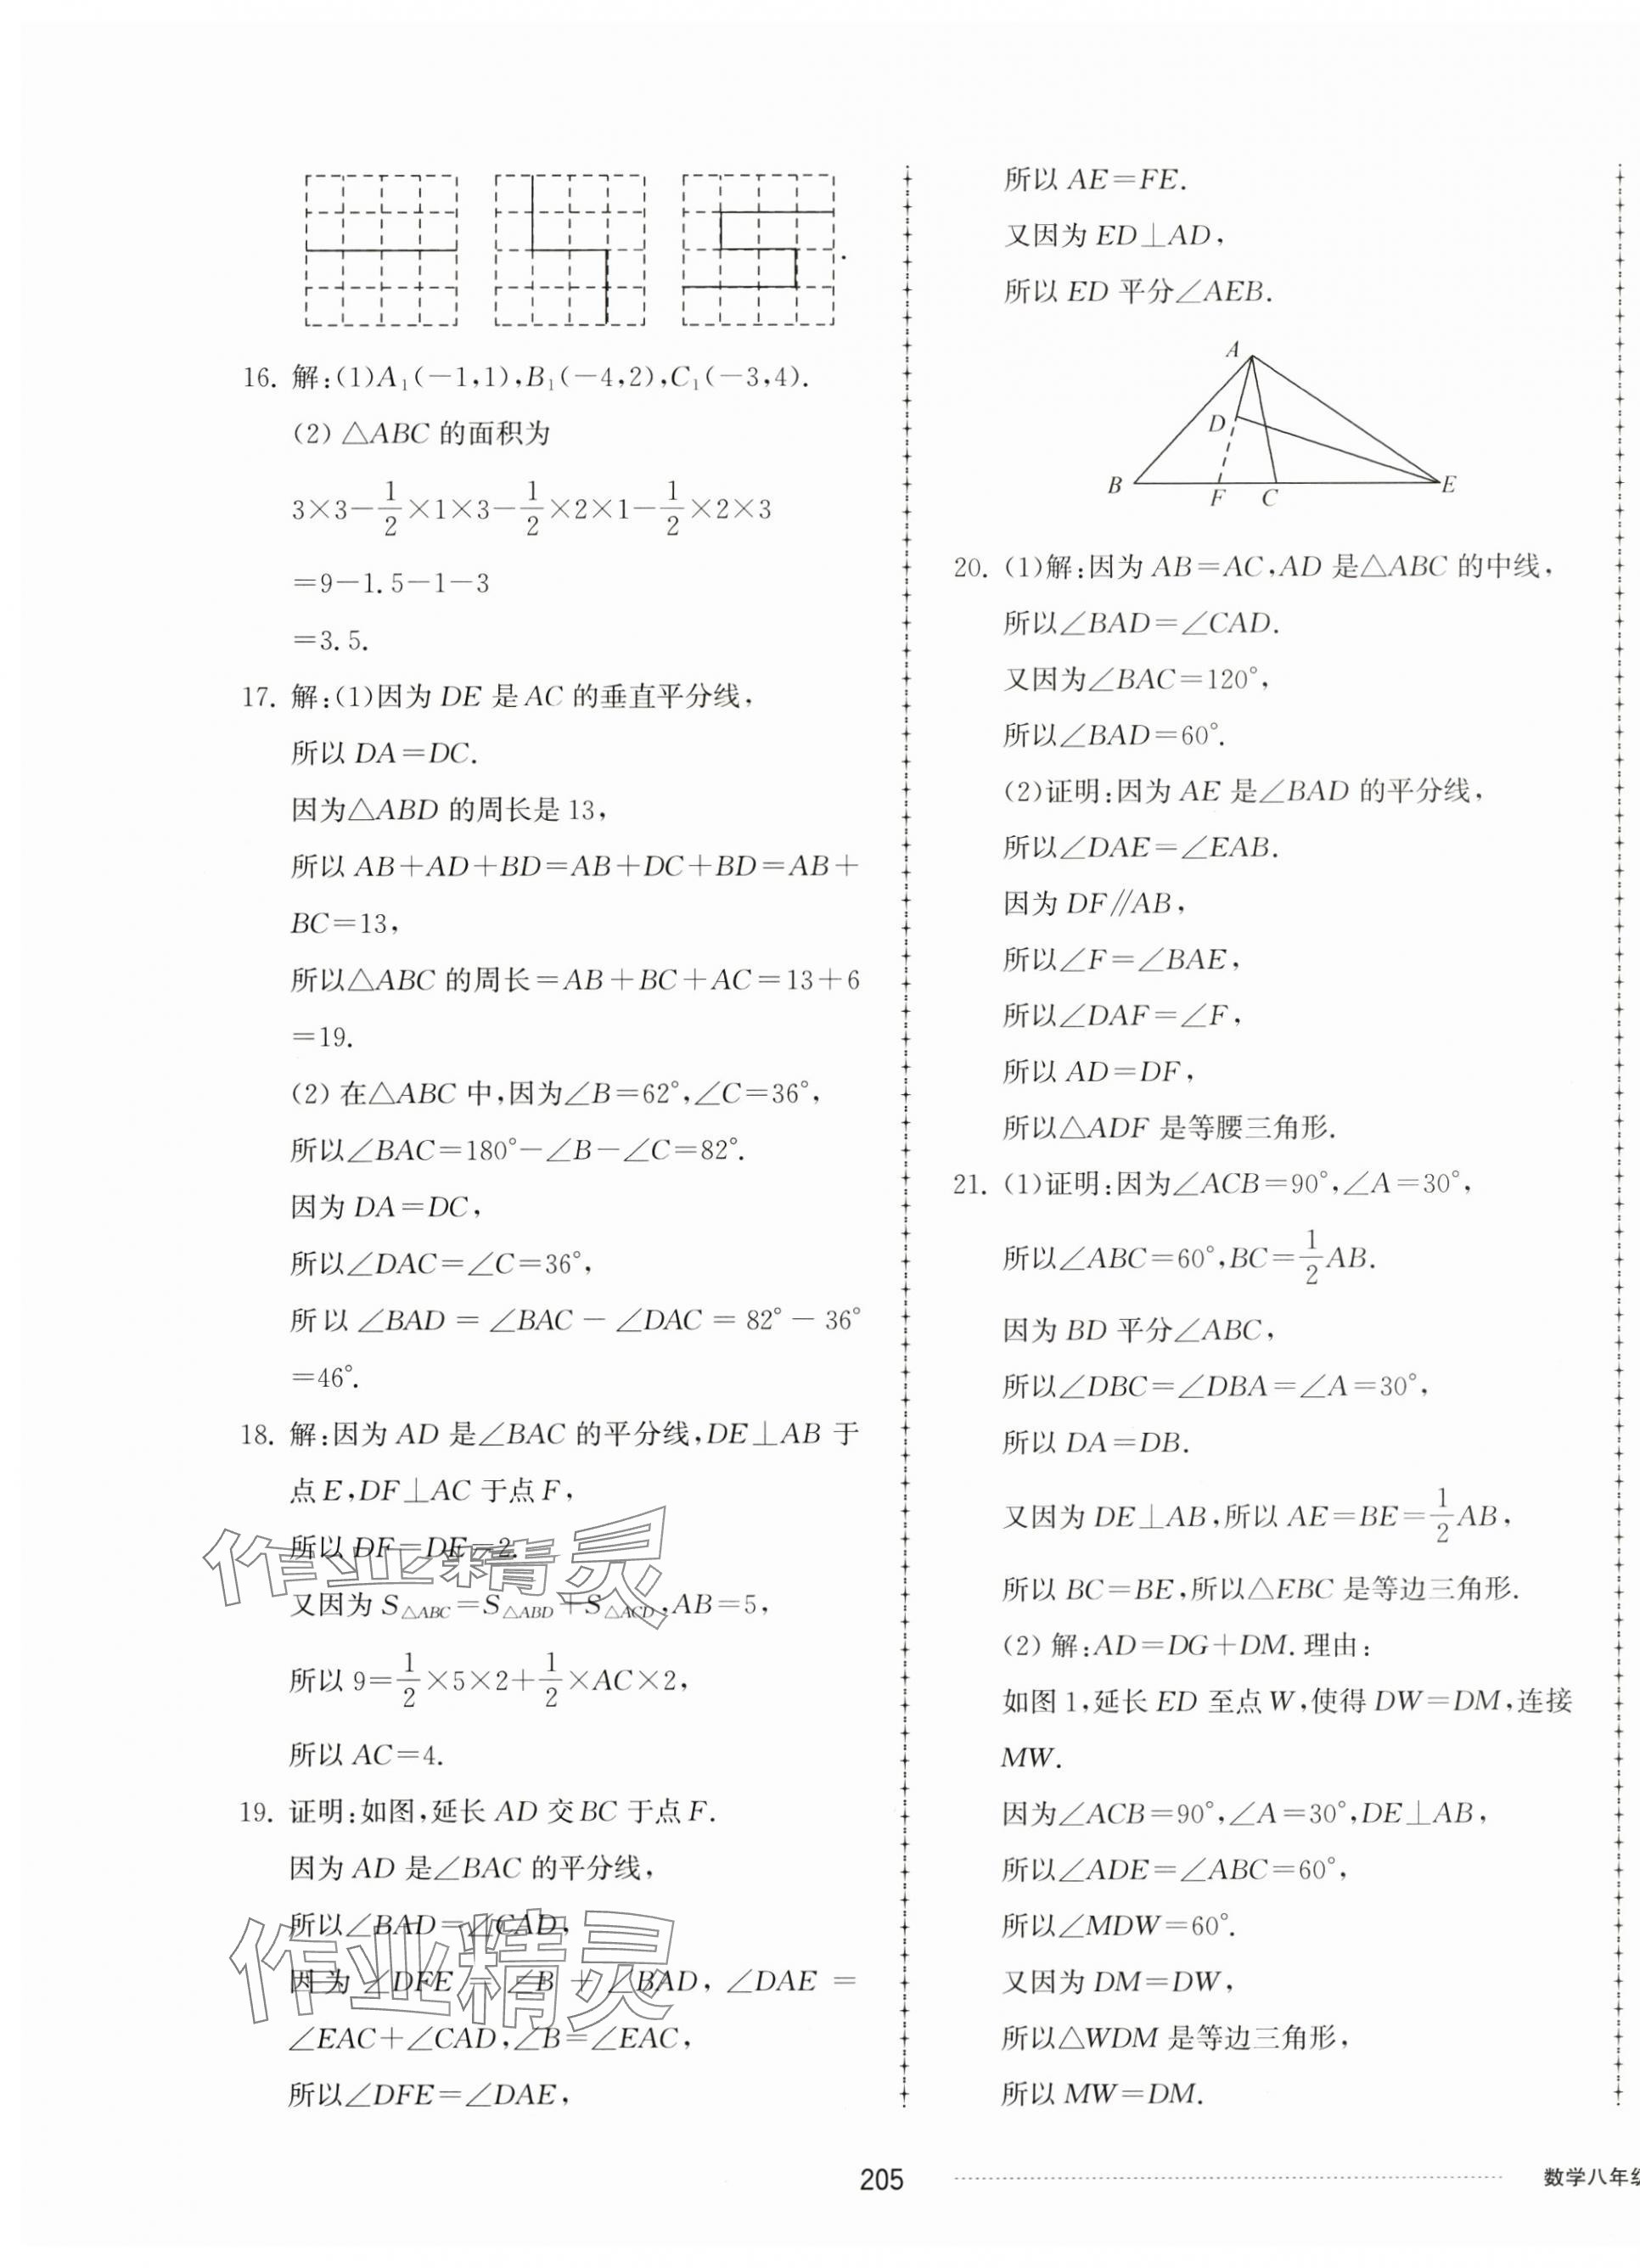 16. 解:(1)A₁(-1,1),B₁(-4,2),C₁(-3,4).
(2) △ABC 的面积为
3×3-1/2×1×3-1/2×2×1-1/2×2×3
=9-1.5-1-3
=3.5.
17. 解:(1)因为 DE 是 AC 的垂直平分线,
所以 DA=DC.
因为△ABD 的周长是 13,
所以 AB+AD+BD=AB+DC+BD=AB+
BC=13,
所以△ABC 的周长=AB+BC+AC=13+6
=19.
(2) 在△ABC 中,因为∠B=62°,∠C=36°,
所以∠BAC=180°-∠B-∠C=82°.
因为 DA=DC,
所以∠DAC=∠C=36°,
所以 ∠BAD = ∠BAC - ∠DAC = 82° - 36°
=46°.
18. 解:因为 AD 是∠BAC 的平分线,DE⊥AB 于
点 E,DF⊥AC 于点 F,
所以 DF=DE=2.
又因为 S△ABC=S△ABD+S△ACD,AB=5,
所以 9=1/2×5×2+1/2×AC×2,
所以 AC=4.
19. 证明:如图,延长 AD 交 BC 于点 F.
因为 AD 是∠BAC 的平分线,
所以∠BAD=∠CAD,
因为 ∠DFE = ∠B + ∠BAD, ∠DAE =
∠EAC+∠CAD,∠B=∠EAC,
所以∠DFE=∠DAE,
所以 AE=FE.
又因为 ED⊥AD,
所以 ED 平分∠AEB.
A
D
B
F
C
E
20. (1)解:因为 AB=AC,AD 是△ABC 的中线,
所以∠BAD=∠CAD.
又因为∠BAC=120°,
所以∠BAD=60°.
(2)证明:因为 AE 是∠BAD 的平分线,
所以∠DAE=∠EAB.
因为 DF∥AB,
所以∠F=∠BAE,
所以∠DAF=∠F,
所以 AD=DF,
所以△ADF 是等腰三角形.
21. (1)证明:因为∠ACB=90°,∠A=30°,
所以∠ABC=60°,BC=1/2AB.
因为 BD 平分∠ABC,
所以∠DBC=∠DBA=∠A=30°,
所以 DA=DB.
又因为 DE⊥AB,所以 AE=BE=1/2AB,
所以 BC=BE,所以△EBC 是等边三角形.
(2) 解:AD=DG+DM.理由:
如图 1,延长 ED 至点 W,使得 DW=DM,连接
MW.
因为∠ACB=90°,∠A=30°,DE⊥AB,
所以∠ADE=∠ABC=60°,
所以∠MDW=60°.
又因为 DM=DW,
所以△WDM 是等边三角形,
所以 MW=DM.
作业精灵
作业精灵
205
数学八年级